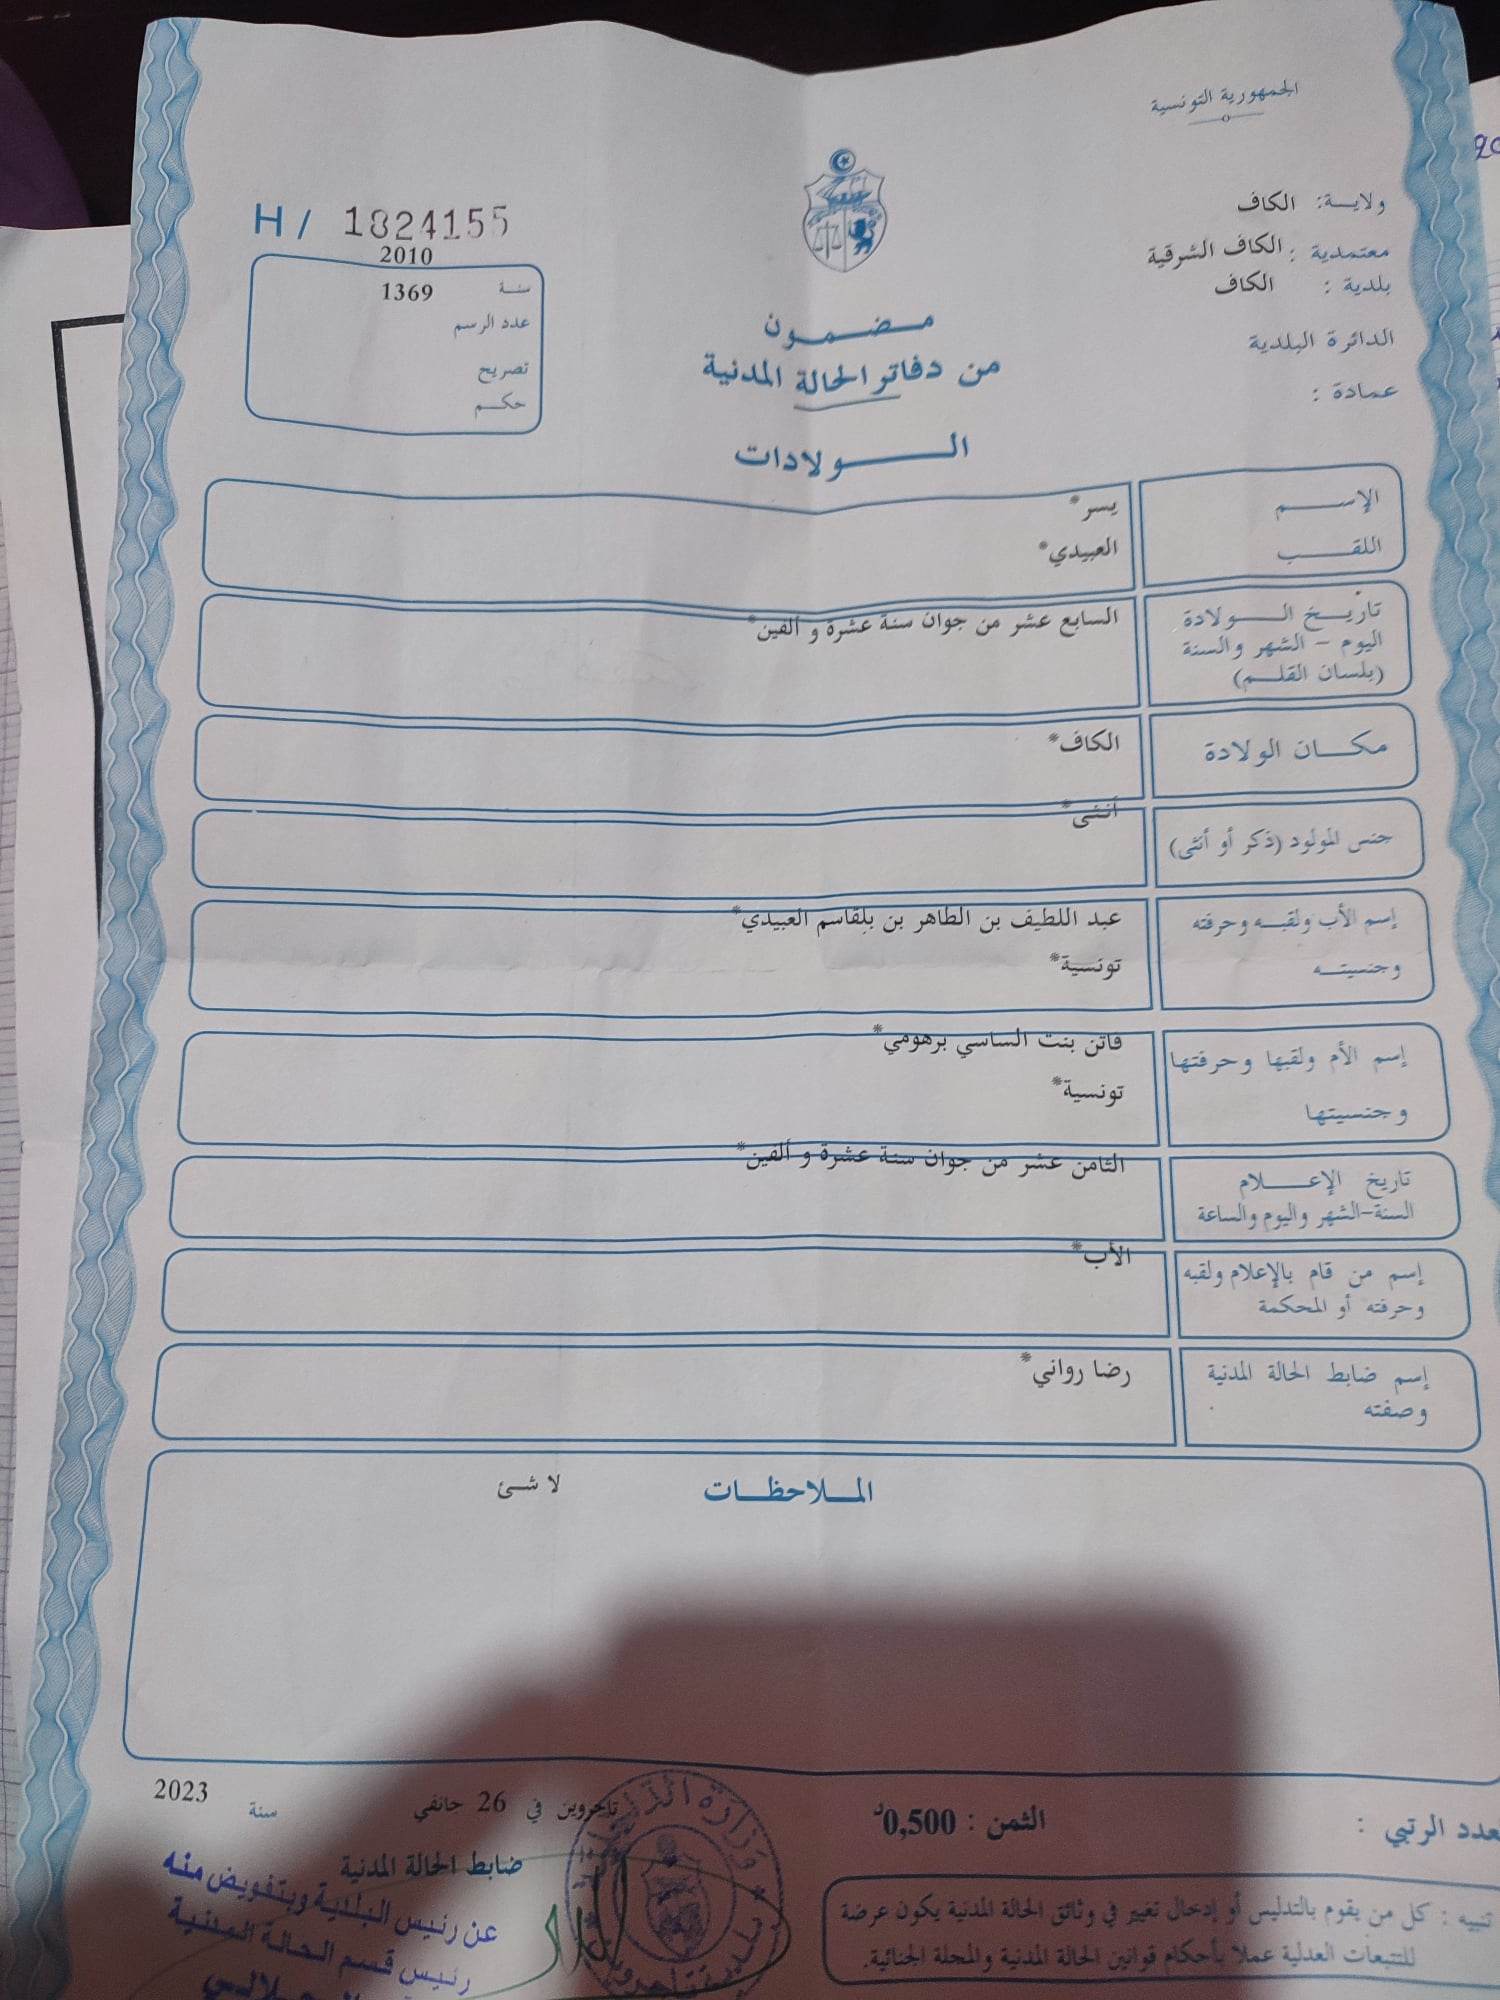 الجمهورية التونسية
ولايـــة: الكاف
معتمدية : الكاف الشرقية
بلدية : الكاف
الدائرة البلدية
عمادة :
H / 1824155
2010
سنــة 1369
عدد الرسم
تصريح
حكـــم
مـــضـــمـــون
من دفاتر الحالة المدنية
الـــــولادات
الإســـــم يسر*
اللقـــــب العبيدي*
تاريـــخ الـــــولادة السابع عشر من جوان سنة عشرة و ألفين*
اليوم – الشهر والسنة
(بلسان القلـــم)
مكـــان الولادة الكاف*
جنس المولود (ذكر أو أنثى) أنثى*
إسم الأب ولقبـــه وحرفته عبد اللطيف بن الطاهر بن بلقاسم العبيدي*
وجنسيتـــه تونسية*
إسم الأم ولقبها وحرفتها فاتن بنت الساسي برهومي*
وجنسيتها تونسية*
تاريخ الإعـــــلام الثامن عشر من جوان سنة عشرة و ألفين*
السنة-الشهر واليوم والساعة
إسم من قام بالإعلام ولقبه الأب*
وحرفته أو المحكمة
إسم ضابط الحالة المدنية رضا رواني*
وصفته
المـــلاحظـــات لا شئ
عدد الرتبي :
الثمن : 0,500د
تاجروين في 26 جانفي سنة 2023
ضابط الحالة المدنية
عن رئيس البلدية وبتفويض منه
رئيس قسم الحالة المدنية
تنبيه : كل من يقوم بالتدليس أو إدخال تغيير في وثائق الحالة المدنية يكون عرضة
للتتبعات العدلية عملا بأحكام قوانين الحالة المدنية والمجلة الجنائية.